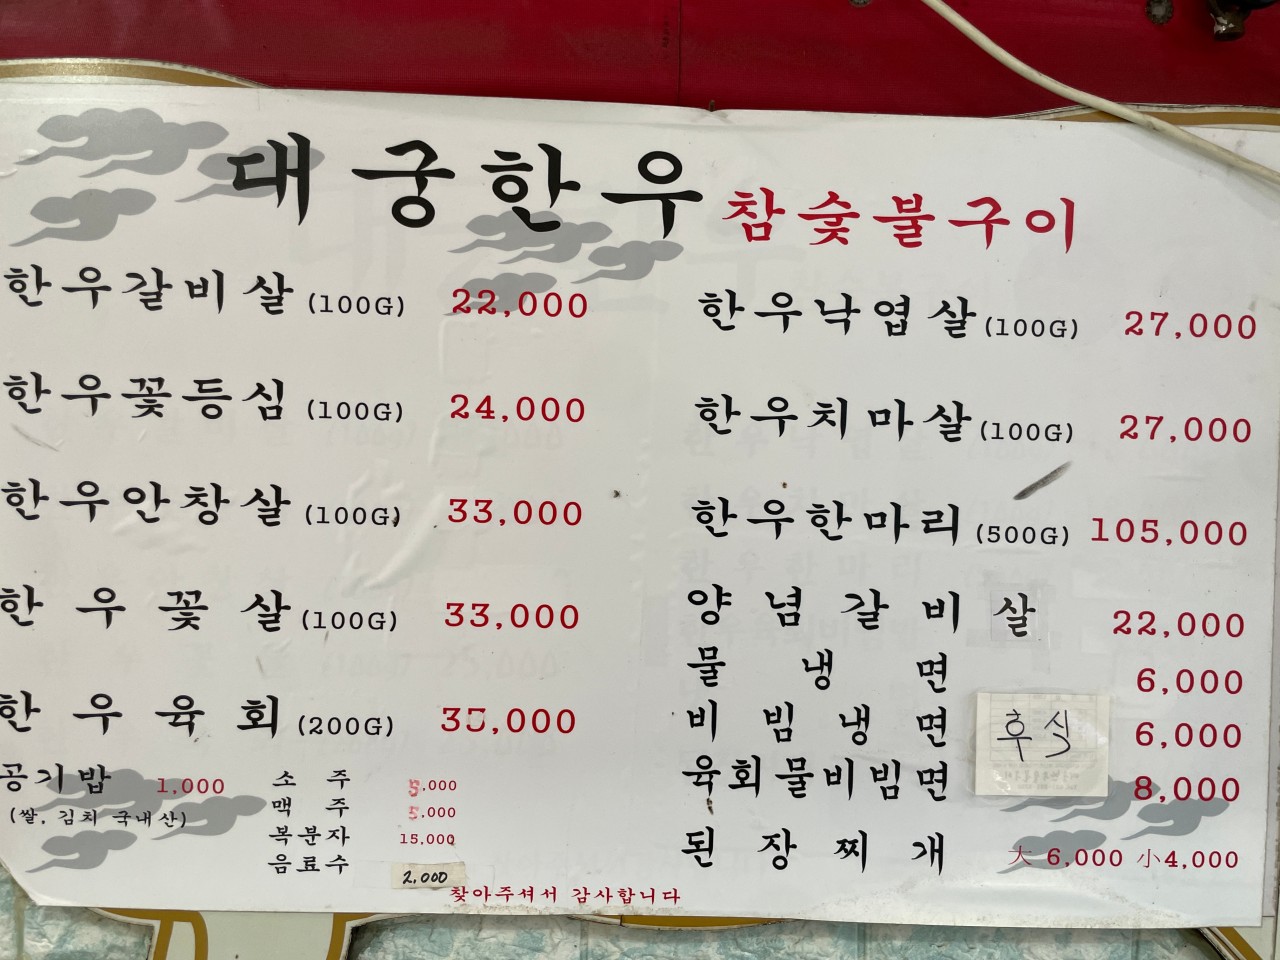 대궁한우 참숯불구이
한우갈비살 (100G) 22,000
한우꽃등심 (100G) 24,000
한우안창살 (100G) 33,000
한우꽃살 (100G) 33,000
한우육회 (200G) 35,000
공기밥 1,000
(쌀, 김치 국내산)
소주 5,000
맥주 5,000
복분자 15,000
음료수 2,000
한우낙엽살 (100G) 27,000
한우치마살 (100G) 27,000
한우한마리 (500G) 105,000
양념갈비살 22,000
물냉면 6,000
비빔냉면 6,000
후식
육회물비빔면 8,000
된장찌개 大 6,000 小 4,000
찾아주셔서 감사합니다